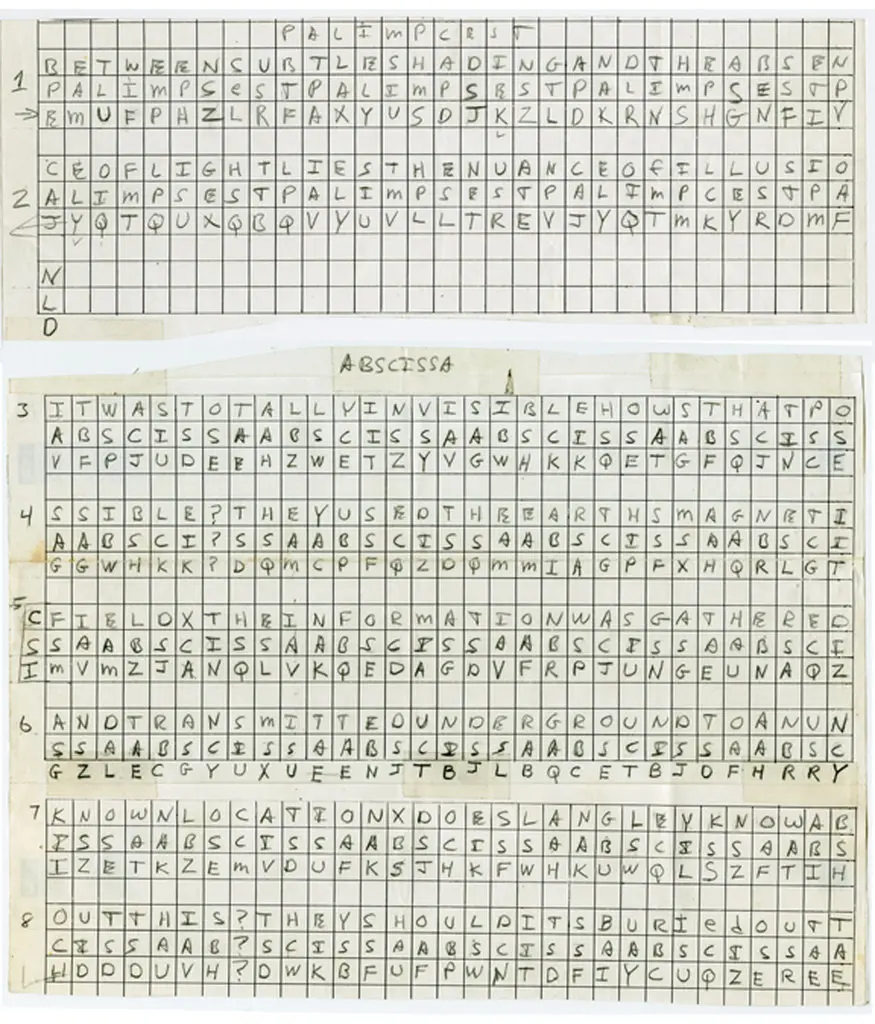 PALIMPCEST
BETWEENSUBTLESHADINGANDTHEABSEN
1 PALIMPSESTPALIMPSESTPALIMPSESTP
EMUFPHZLRFAXYUSDJKZLDKRNSHGNFIV
CEOFLIGHTLIESTHENUANCEOFILLUSIO
2 ALIMPSESTPALIMPSESTPALIMPCESTPA
JYQTQUXQBQVYUVLLTREVJYQTMKYRDMF
N
L
D
ABSCISSA
3 ITWASTOTALLYINVISIBLEHOWSTHATPO
ABSCISSAABSCISSAABSCISSAABSCISS
VFPJUDEEHZWETZYVGWHKKQETGFQJNCE
4 SSIBLE?THEYUSEDTHEEARTHSMAGNETI
AABSCI?SSAABSCISSAABSCISSAABSCI
GGWHKK?DQMCPFQZDQMMIAGPFXHQRLGT
5 CFIELDXTHEINFORMATIONWASGATHERED
SSAABSCISSAABSCISSAABSCISSAABSCI
IMVMZJANQLVKQEDAGDVFRPJUNGEUNAQZ
6 ANDTRANSMITTEDUNDERGROUNDTOANUN
SSAABSCISSAABSCISSAABSCISSAABSC
GZLECGYUXUEENJTBJLBQCETBJDFHRRY
7 KNOWNLOCATIONXDOESLANGLEYKNOWAB
ISSAABSCISSAABSCISSAABSCISSAABS
IZETKZEMVDUFKSJHKFWHKUWQLSZFTIH
8 OUTTHIS?THEYSHOULDITSBURIedOUTT
CISSAAB?SCISSAABSCISSAABSCISSAA
HDDDUVH?DWKBFUFPWNTDFIYCUQZEREE